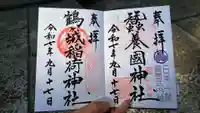 奉拝
蠶養國神社
令和七年九月十七日
奉拝
鶴ヶ城稲荷神社
令和七年九月十七日